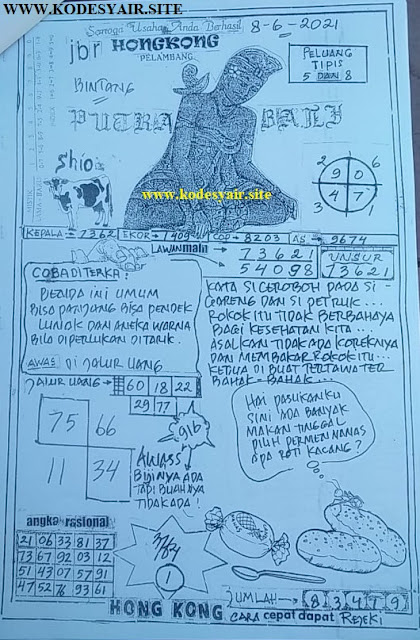 WWW.KODESYAIR.SITE
Semoga Usaha Anda Berhasil
8-6-2021
jbr HONGKONG
PELAMBANG
PELUANG
TIPIS
5 DAN 8
BINTANG
PUTRA BALI
Shio
www.kodesyair.site
2 6
9 0
4 7
3 1
KEPALA = 7362 EKOR = 1409 COP = 8203 AS = 9674
LAWAN main
73621
54098
UNSUR
73621
COBA DITERKA!
BENDA INI UMUM
BISA PANJANG BISA PENDEK
LUNOK DAN ANEKA WARNA
BILA DIPERLUKAN DITARIK.
AWAS DI JALUR UANG
KATA SI CEROBOH PADA SI-
CEORENG DAN SI PETRUK...
ROKOK ITU TIDAK BERBAHAYA
BAGI KESEHATAN KITA...
ASALKAN TIDAK ADA KOREKNYA
DAN MEMBAKAR ROKOK ITU...
KEDUA DI BUAT TERTAWA TER
BAHAK-BAHAK...
JALUR UANG
60 18 22
29 77
75 66
11 34
gib
AWASS
BIJINYA ADA
TAPI BUAHNYA
TIDAK ADA!
HAI PASUKANKU
SINI ADA BANYAK
MAKAN TINGGAL
PILIH PERMEN NANAS
APA ROTI KACANG?
angka rasional
21 06 33 81 37
73 67 92 03 12
51 43 07 57 91
47 52 76 93 61
1
JUMLAH = 8 3 4 7 9
HONG KONG CARA cepat dapat REJEKI